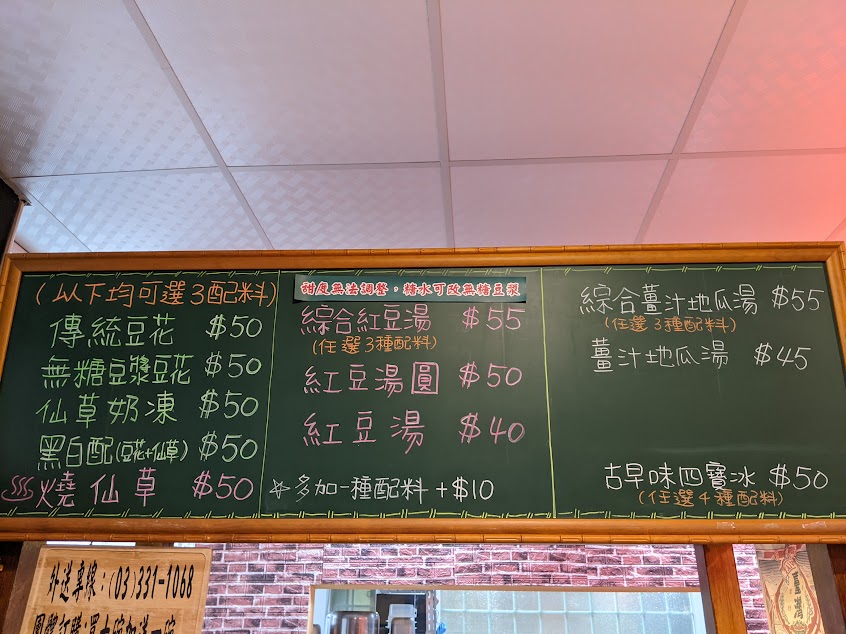 (以下均可選3配料)
傳統豆花 $50
無糖豆漿豆花 $50
仙草奶凍 $50
黑白配(豆花+仙草) $50
燒仙草 $50
甜度無法調整,糖水可改無糖豆漿
綜合紅豆湯 $55
(任選3種配料)
紅豆湯圓 $50
紅豆湯 $40
☆多加一種配料+$10
綜合薑汁地瓜湯 $55
(任選3種配料)
薑汁地瓜湯 $45
古早味四寶冰 $50
(任選4種配料)
外送專線:(03)331-1068
團體訂購:買十碗加送一碗